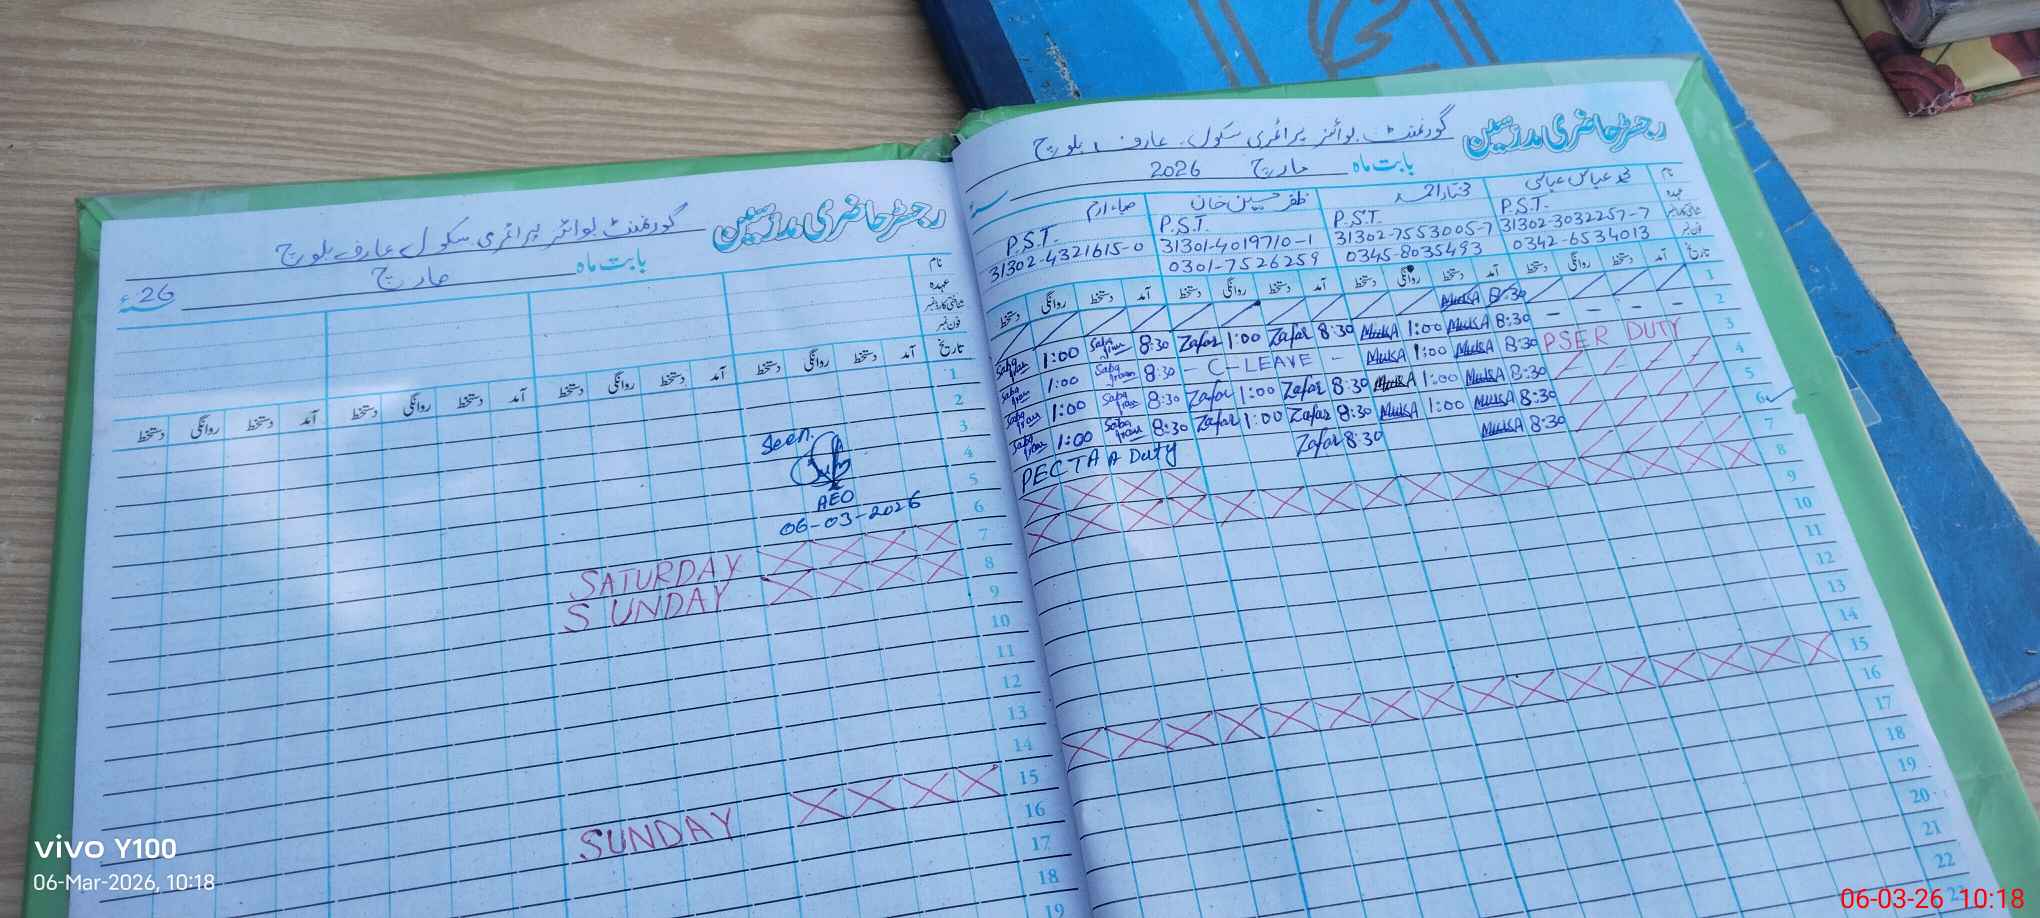 رجسٹر حاضری مدرسین گورنمنٹ بوائز پرائمری سکول عارف بلوچ
بابت ماہ مارچ 2026
نام محمد عباس عباسی ظفر حسین خان صباء ارم
عہدہ P.S.T. P.S.T. P.S.T. P.S.T.
شناختی کارڈ نمبر 31302-3032257-7 31302-7553005-7 31301-4019710-1 31302-4321615-0
فون نمبر 0342-6534013 0345-8035493 0301-7526259
تاریخ آمد دستخط روانگی دستخط آمد دستخط روانگی دستخط آمد دستخط روانگی دستخط آمد دستخط روانگی دستخط
1
2 8:30
Saba Iram 1:00 Saba Iram 8:30 Zafar 1:00 Zafar 8:30 1:00 8:30 PSER DUTY 3
Saba Iram 1:00 Saba Iram 8:30 - C-LEAVE - 1:00 8:30 4
Saba Iram 1:00 Saba Iram 8:30 Zafar 1:00 Zafar 8:30 1:00 8:30 5
Saba Iram 1:00 Saba Iram 8:30 Zafar 1:00 Zafar 8:30 1:00 8:30 6
PECTAA Duty Zafar 8:30 8:30
7
8
9
10
11
12
13
14
15
16
17
18
19
20
21
22
23
رجسٹر حاضری مدرسین گورنمنٹ بوائز پرائمری سکول عارف بلوچ
بابت ماہ مارچ 26ء
نام
عہدہ
شناختی کارڈ نمبر
فون نمبر
تاریخ آمد دستخط روانگی دستخط آمد دستخط روانگی دستخط آمد دستخط روانگی دستخط
1
2
3
Seen. 4
5
AEO 6
06-03-2026
SATURDAY 7
SUNDAY 8
9
10
11
12
13
14
SUNDAY 15
16
17
18
19
vivo Y100
06-Mar-2026, 10:18
06-03-26 10:18